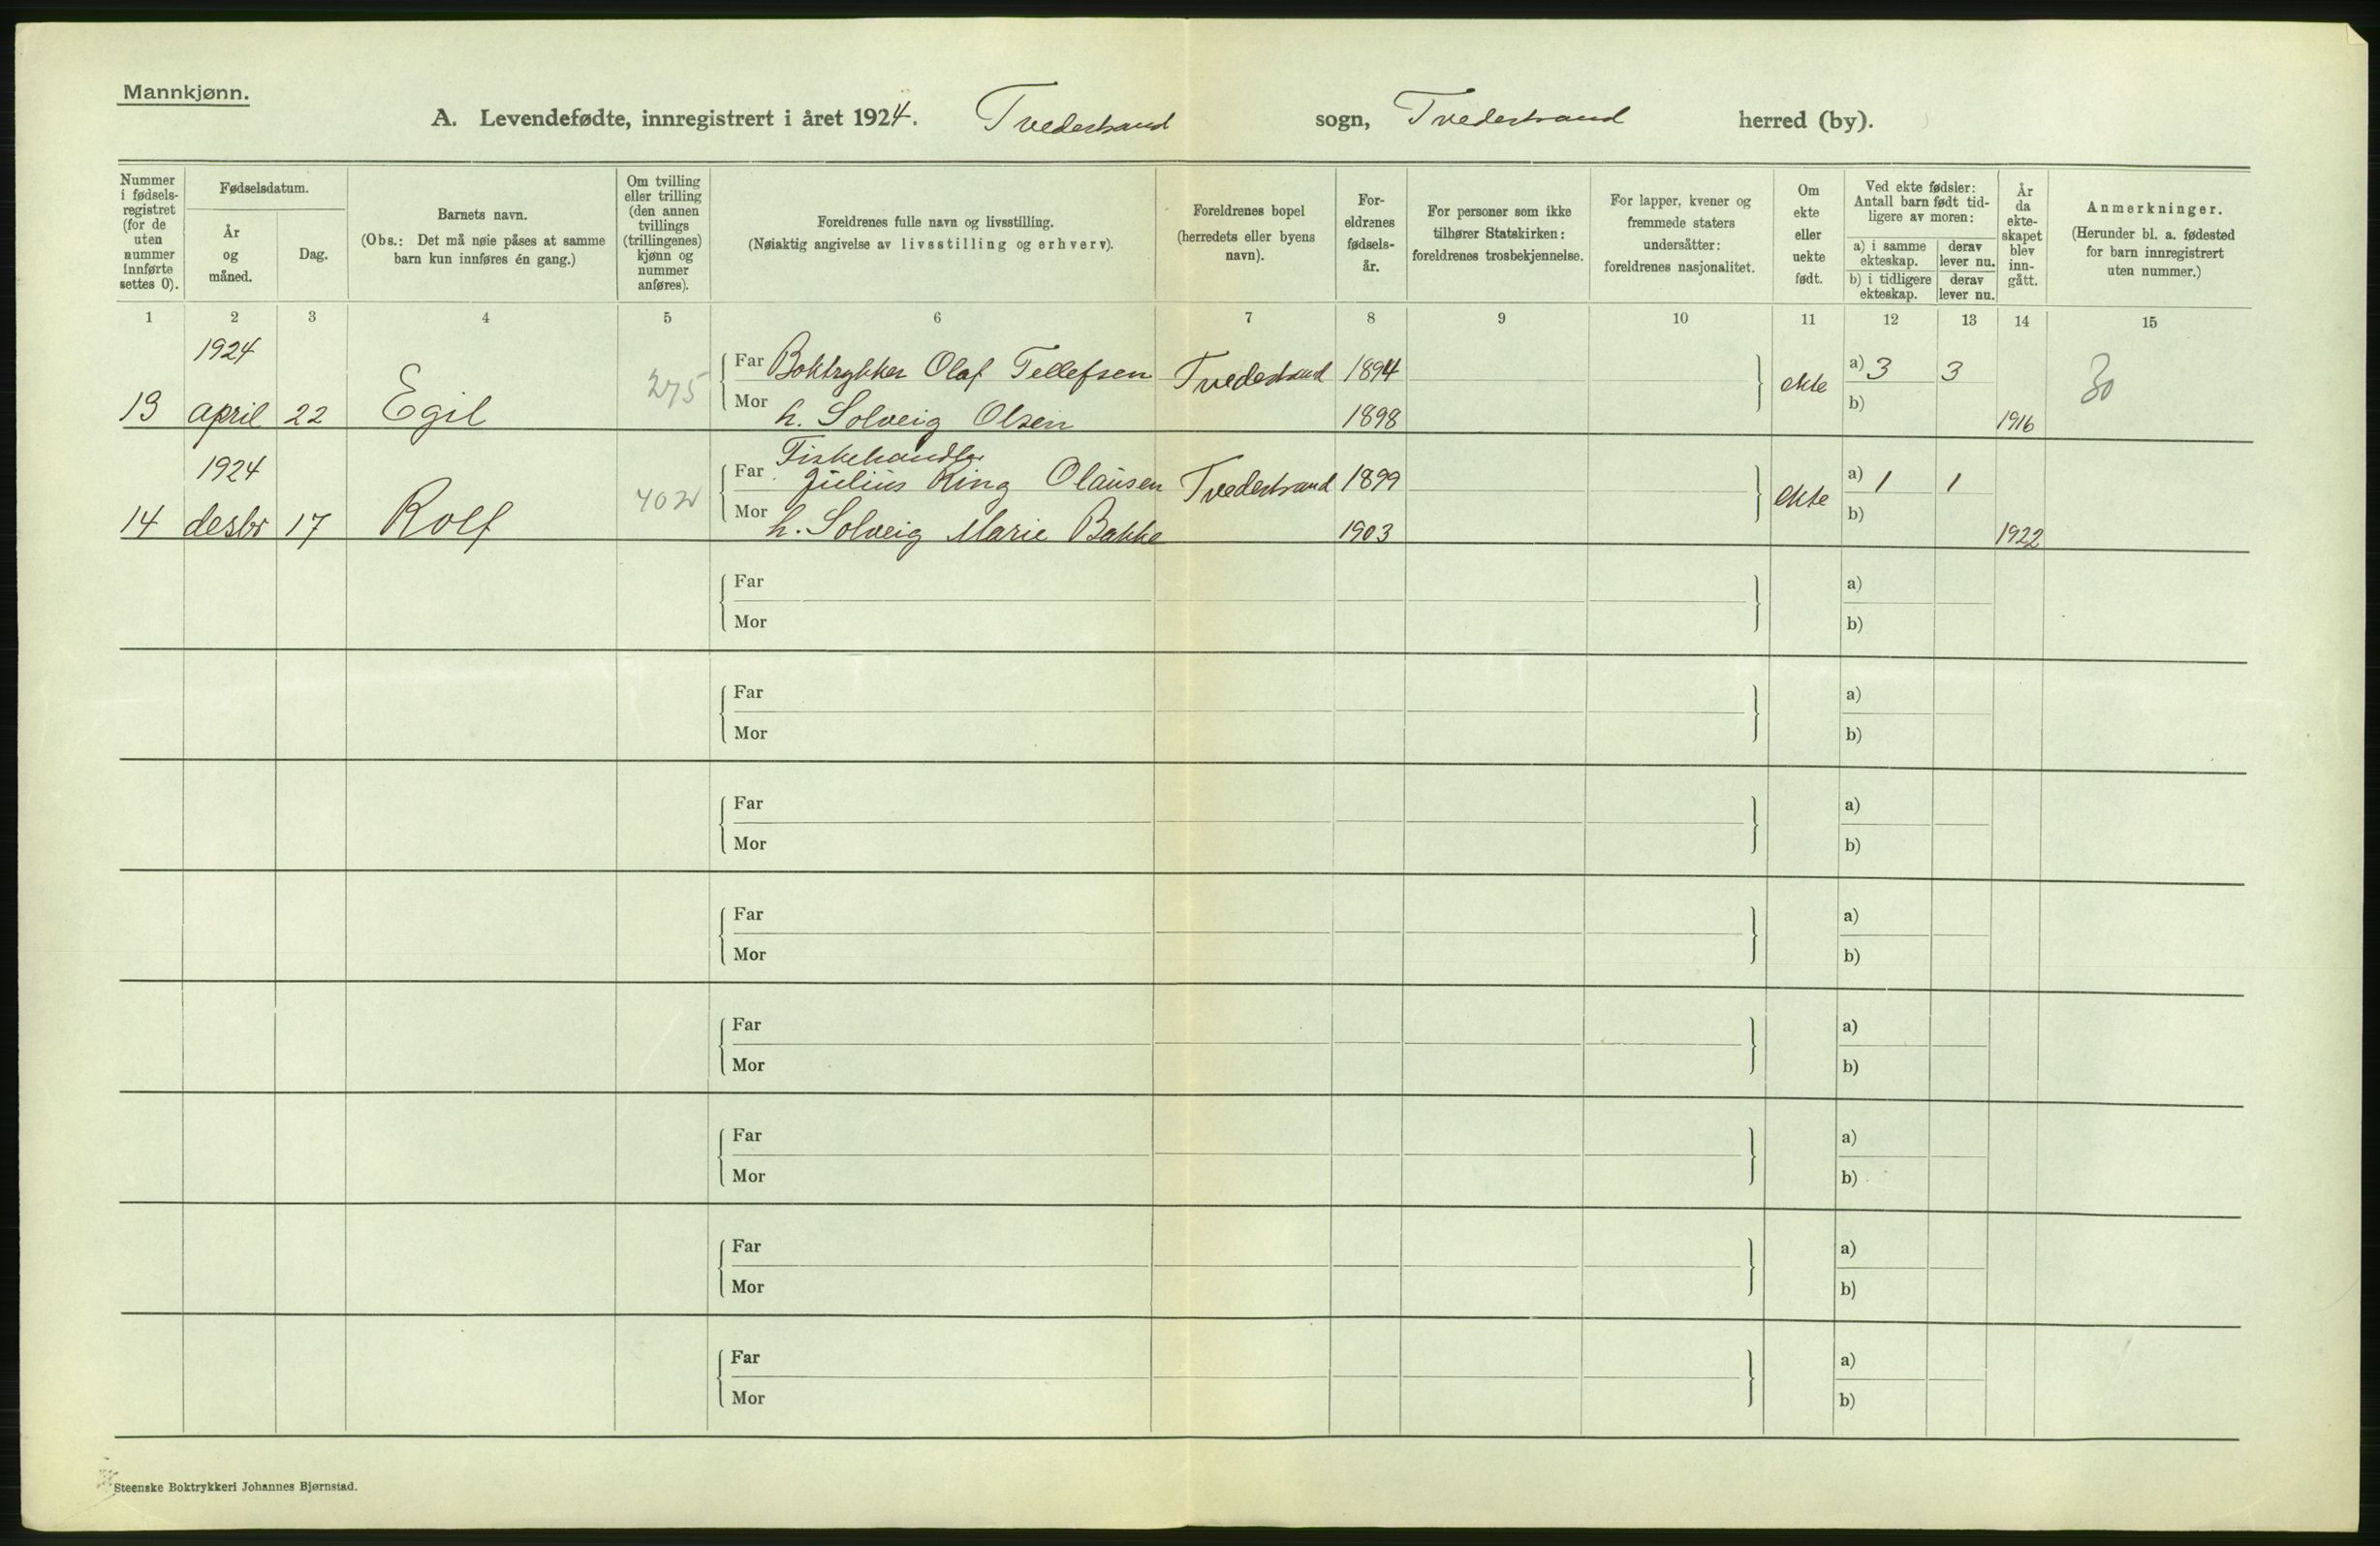 Mannkjønn.
A. Levendefødte, innregistrert i året 1924. Tvedestrand sogn, Tvedestrand herred (by).
Nummer i fødsels- registret (for de uten nummer innførte settes 0).
Fødselsdatum.
År og måned.
Dag.
Barnets navn.
(Obs.: Det må nøie påses at samme barn kun innføres én gang.)
Om tvilling eller trilling (den annen tvillings (trillingenes) kjønn og nummer anføres).
Foreldrenes fulle navn og livsstilling.
(Nøiaktig angivelse av livsstilling og erhverv).
Foreldrenes bopel (herredets eller byens navn).
For- eldrenes fødsels- år.
For personer som ikke tilhører Statskirken: foreldrenes trosbekjennelse.
For lapper, kvener og fremmede staters undersåtter: foreldrenes nasjonalitet.
Om ekte eller uekte født.
Ved ekte fødsler: Antall barn født tid- ligere av moren:
a) i samme ekteskap.
derav lever nu.
b) i tidligere ekteskap.
derav lever nu.
År da ekte- skapet blev inn- gått.
Anmerkninger.
(Herunder bl. a. fødested for barn innregistrert uten nummer.)
1 2 3 4 5 6 7 8 9 10 11 12 13 14 15
1924
Far Boktrykker Olaf Tellefsen Tvedestrand 1894 a) 3 3
13 april 22 Egil 275 ekte 30
Mor h. Solveig Olsen 1898 b) 1916
1924 Fiskehandler
Far Julius Ring Olausen Tvedestrand 1899 a) 1 1
14 desbr 17 Rolf 402 ekte
Mor h. Solveig Marie Bakke 1903 b) 1922
Far a)
Mor b)
Far a)
Mor b)
Far a)
Mor b)
Far a)
Mor b)
Far a)
Mor b)
Far a)
Mor b)
Far a)
Mor b)
Far a)
Mor b)
Steenske Boktrykkeri Johannes Bjørnstad.